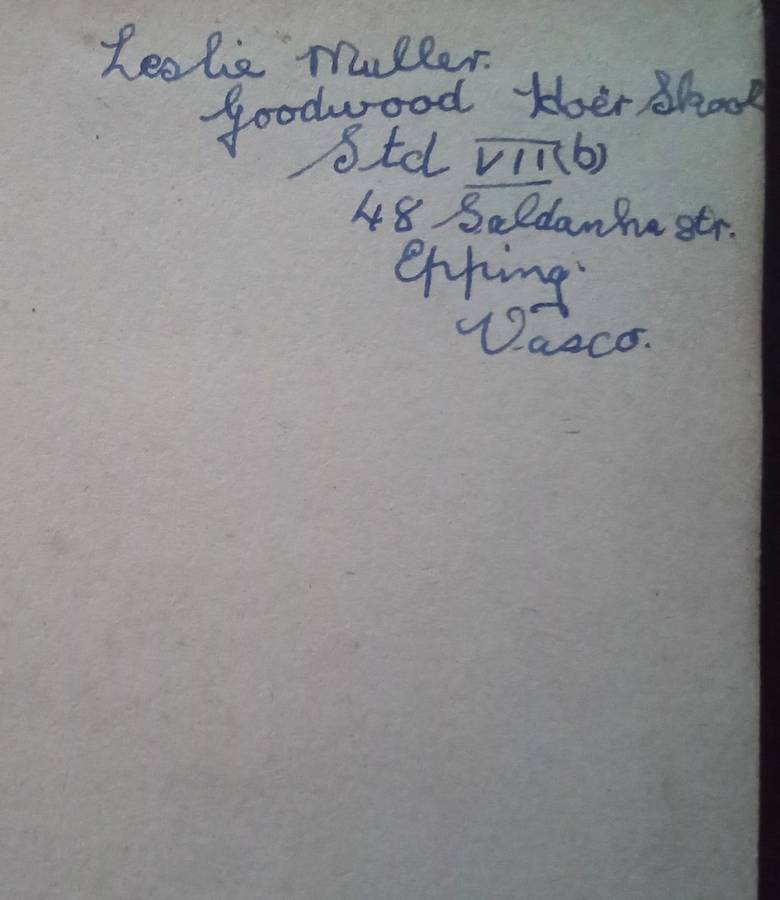 Leslie Muller.
Goodwood Hoër Skool
Std VII(b)
48 Saldanha str.
Epping.
Vasco.